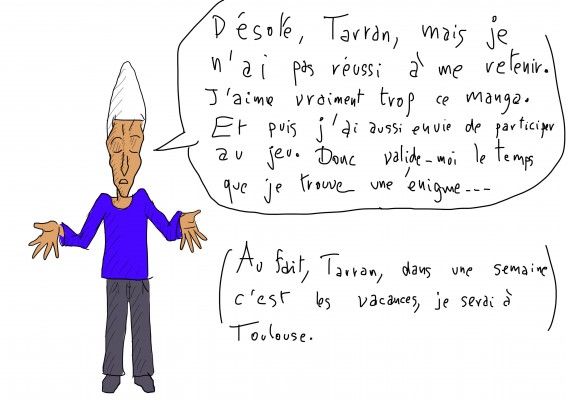 Désolé, Tarran, mais je
n'ai pas réussi à me retenir.
J'aime vraiment trop ce manga.
Et puis j'ai aussi envie de participer
au jeu. Donc valide-moi le temps
que je trouve une énigme---
(Au fait, Tarran, dans une semaine
c'est les vacances, je serai à
Toulouse.)